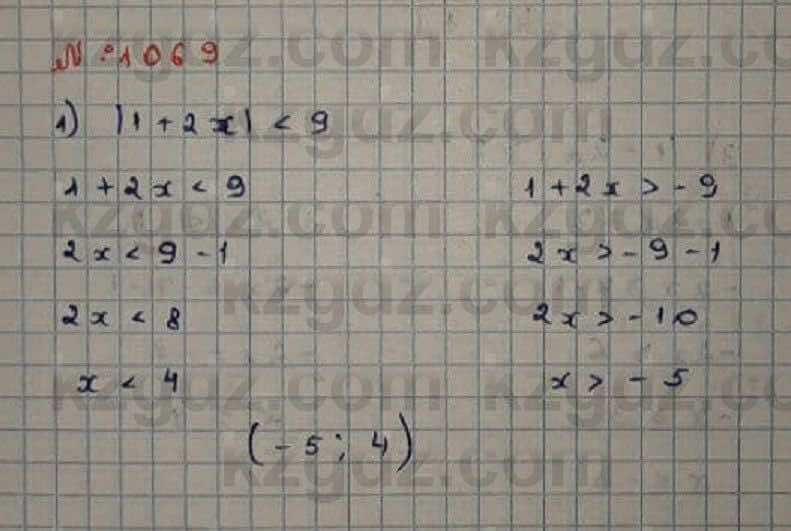 № 1069
1) |1 + 2x| < 9
1 + 2x < 9 1 + 2x > - 9
2x < 9 - 1 2x > - 9 - 1
2x < 8 2x > - 10
x < 4 x > - 5
(- 5; 4)
kzgdz.com